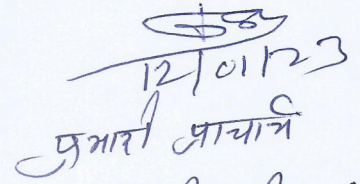 12/01/23
प्रभारी प्राचार्य